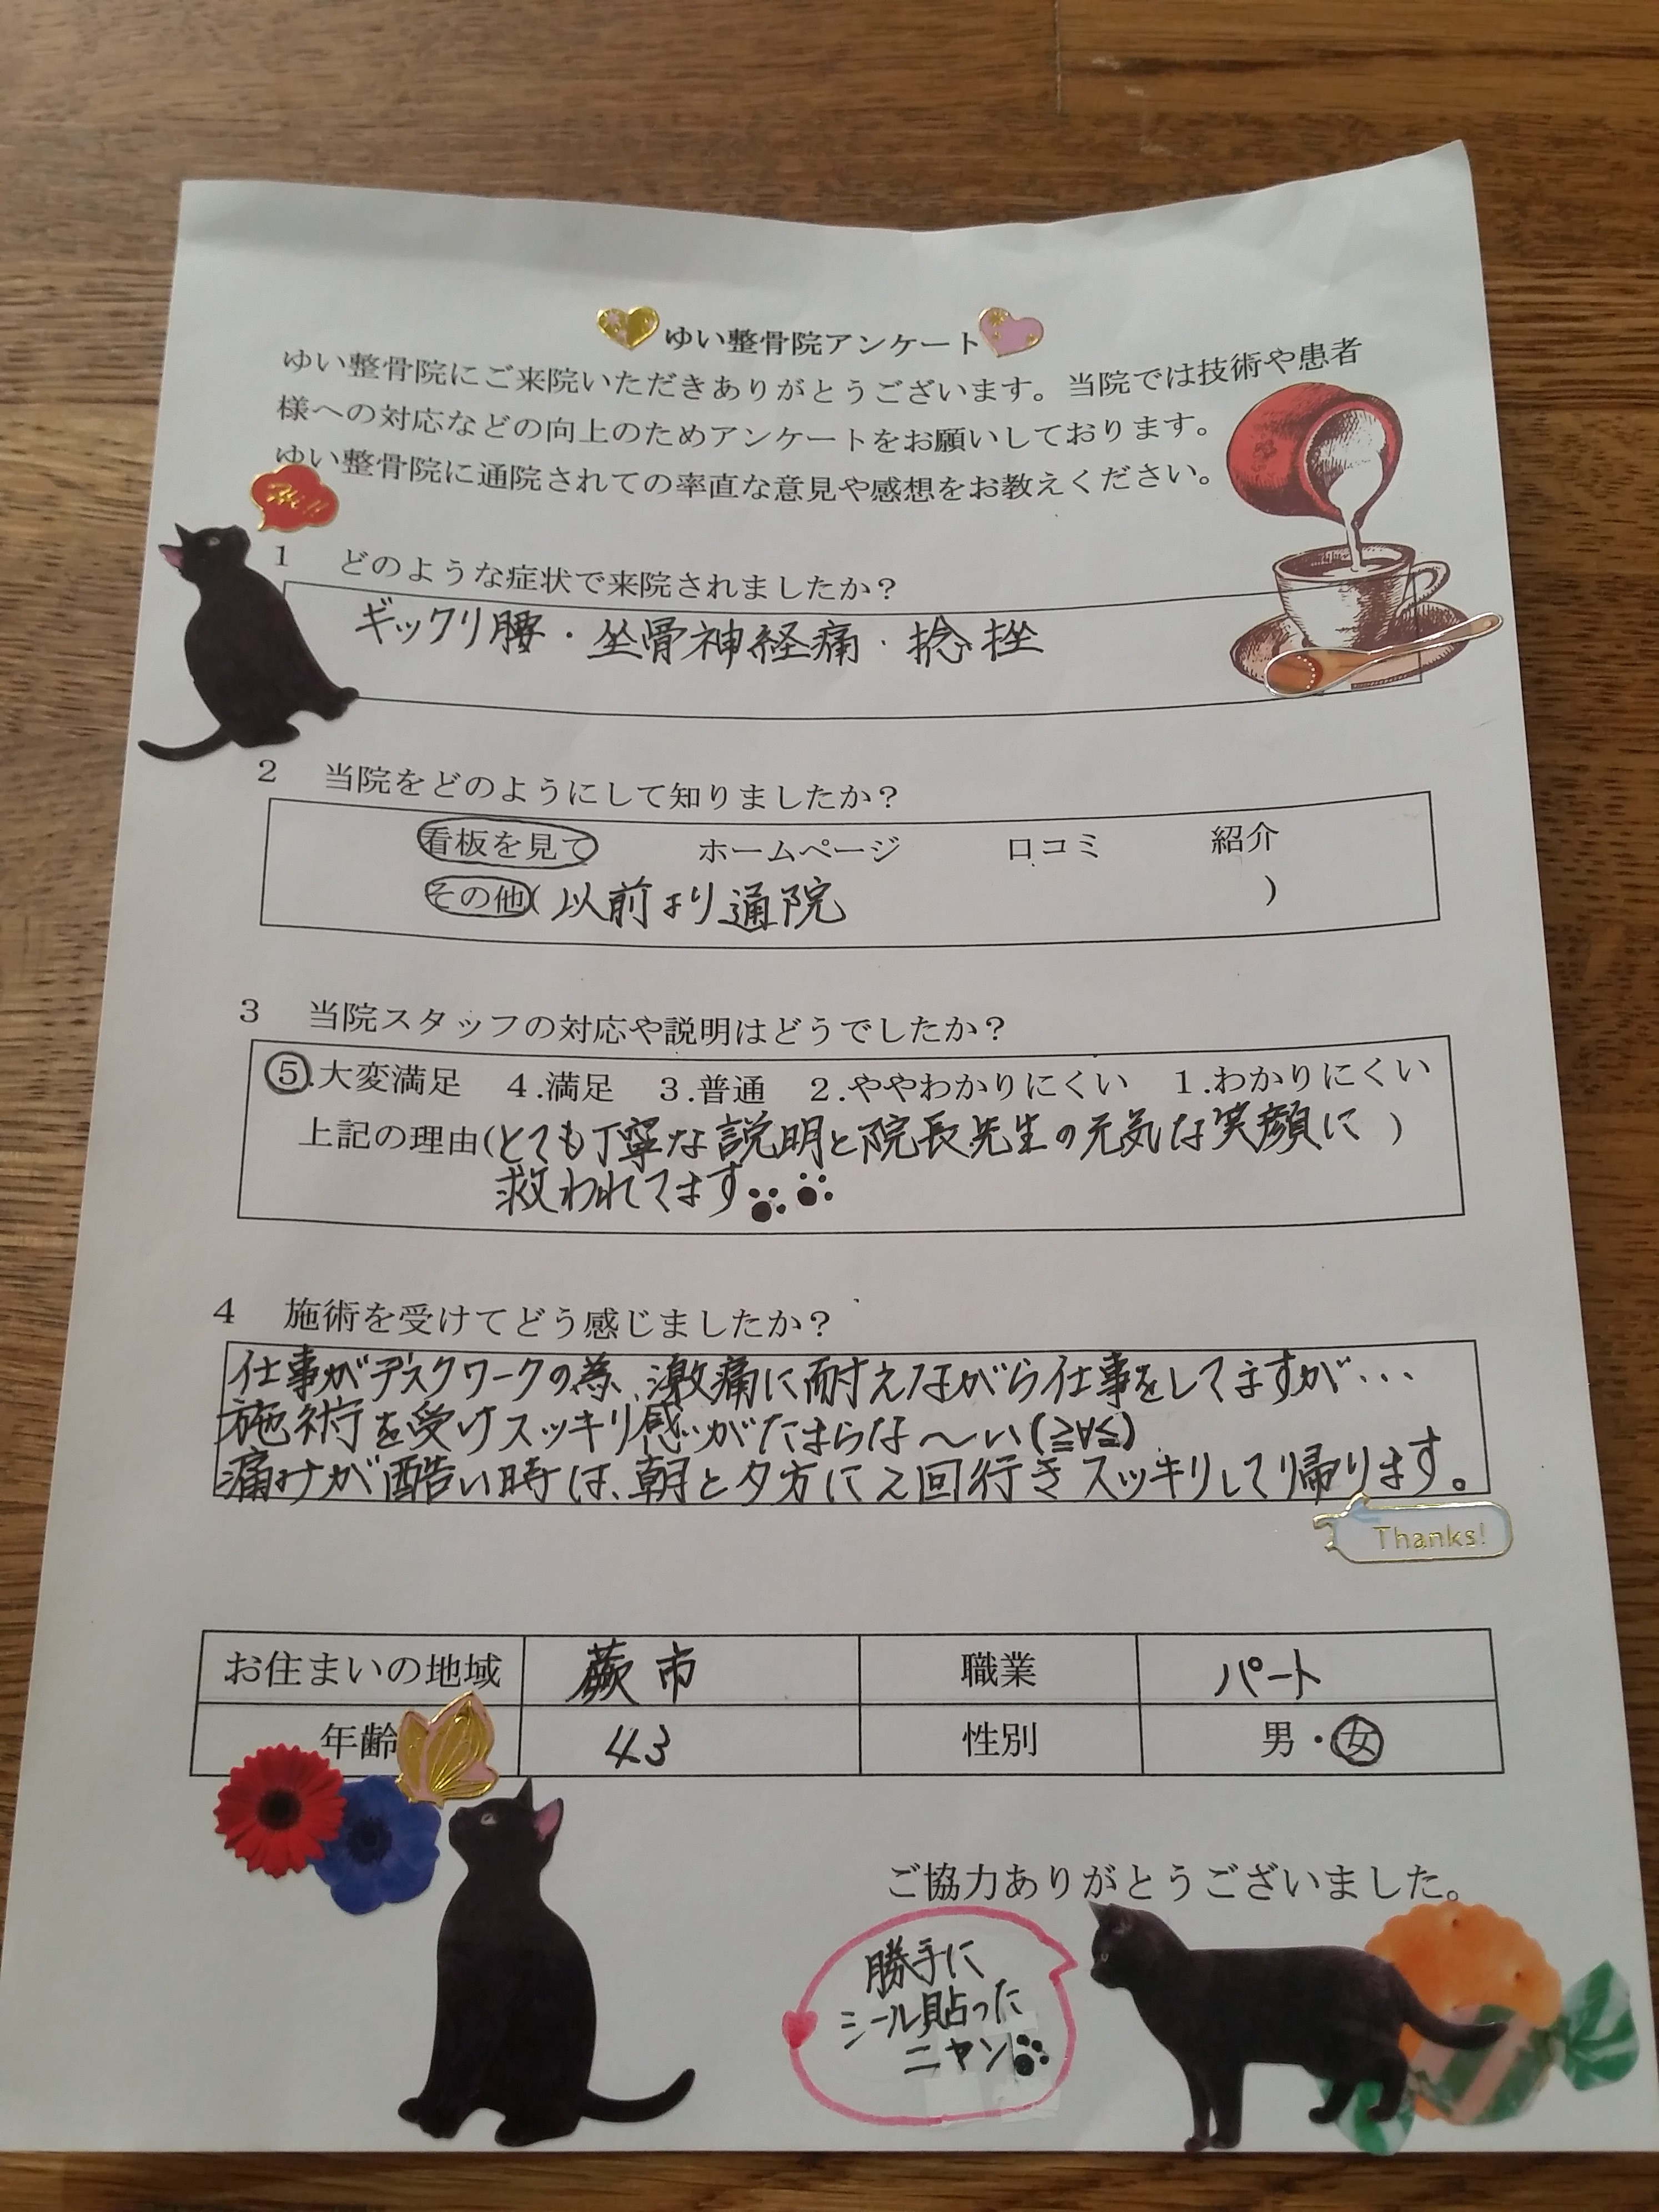 ゆい整骨院アンケート
ゆい整骨院にご来院いただきありがとうございます。当院では技術や患者
様への対応などの向上のためアンケートをお願いしております。
ゆい整骨院に通院されての率直な意見や感想をお教えください。
Hi!!
1 どのような症状で来院されましたか？
ギックリ腰・坐骨神経痛・捻挫
2 当院をどのようにして知りましたか？
看板を見て ホームページ 口コミ 紹介
その他(以前より通院 )
3 当院スタッフの対応や説明はどうでしたか？
5.大変満足 4.満足 3.普通 2.ややわかりにくい 1.わかりにくい
上記の理由(とても丁寧な説明と院長先生の元気な笑顔に )
救われてます
4 施術を受けてどう感じましたか？
仕事がデスクワークの為、激痛に耐えながら仕事をしてますが…
施術を受けスッキリ感がたまらな〜い(≧∀≦)
痛みが酷い時は、朝と夕方に2回行きスッキリして帰ります。
Thanks!
お住まいの地域 蕨市 職業 パート
年齢 43 性別 男・女
ご協力ありがとうございました。
勝手に
シール貼った
ニャン